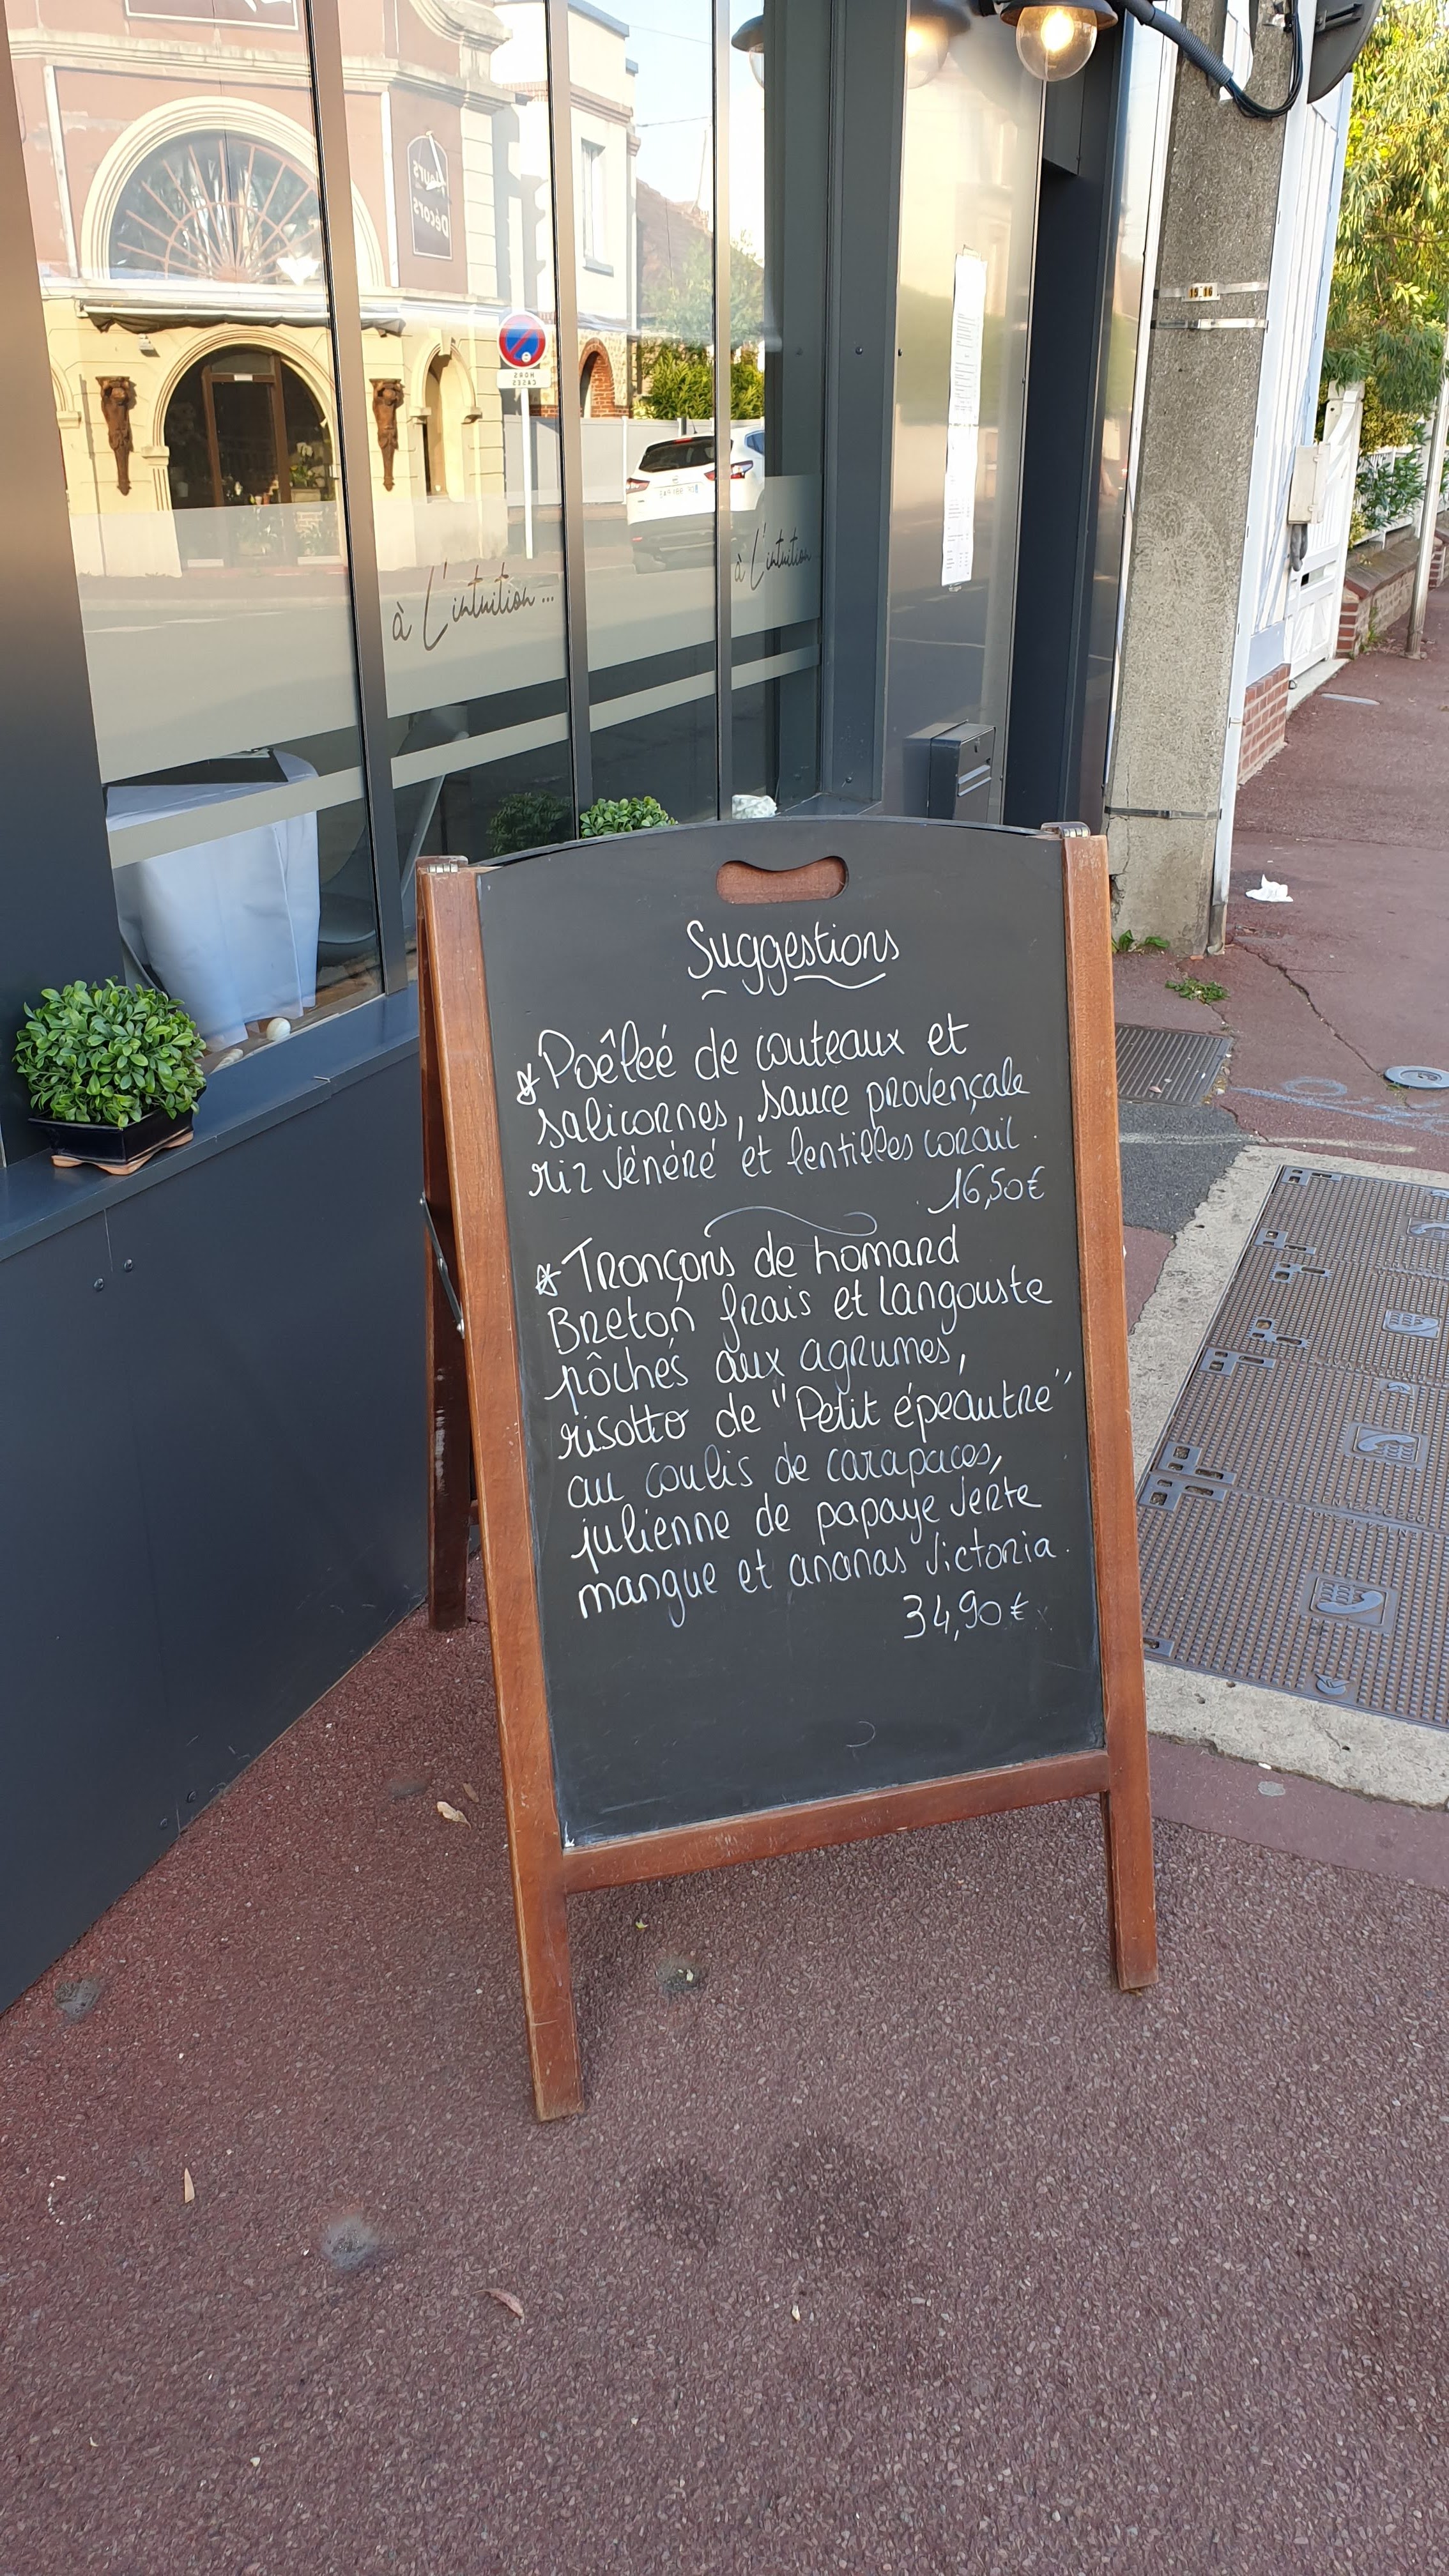 à L'intuition...
à L'intuition
Suggestions
Poêleé de couteaux et
salicornes, sauce provençale
riz vénéré et lentilles corail.
16,50€
Tronçons de homard
Breton frais et langouste
pôchés aux agrumes,
risotto de "Petit épeautre"
au coulis de carapaces,
julienne de papaye verte
mangue et ananas Victoria.
34,90€